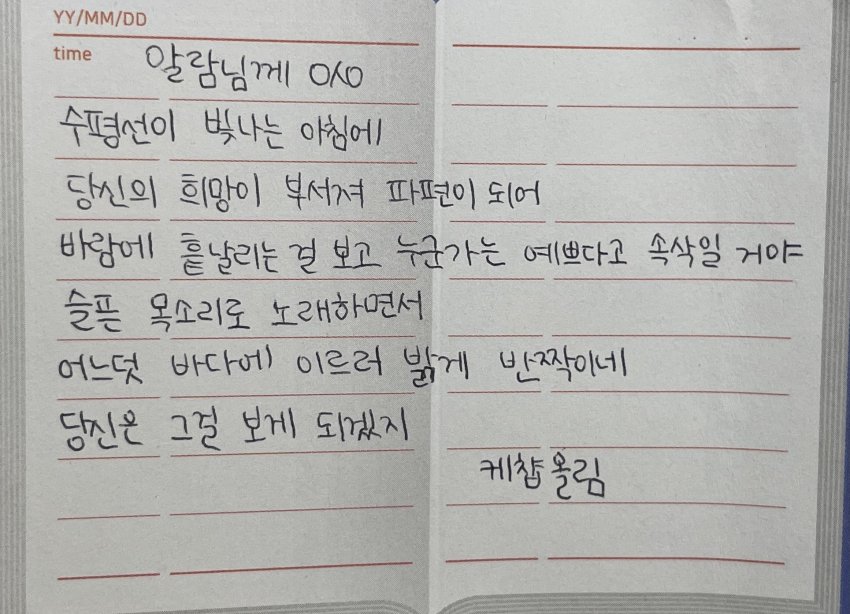 YY/MM/DD
time
알람님께 O시O
수평선이 빛나는 아침에
당신의 희망이 부서져 파편이 되어
바람에 흩날리는 걸 보고 누군가는 예쁘다고 속삭일 거야
슬픈 목소리로 노래하면서
어느덧 바다에 이르러 밝게 반짝이네
당신은 그걸 보게 되겠지
케챱 올림